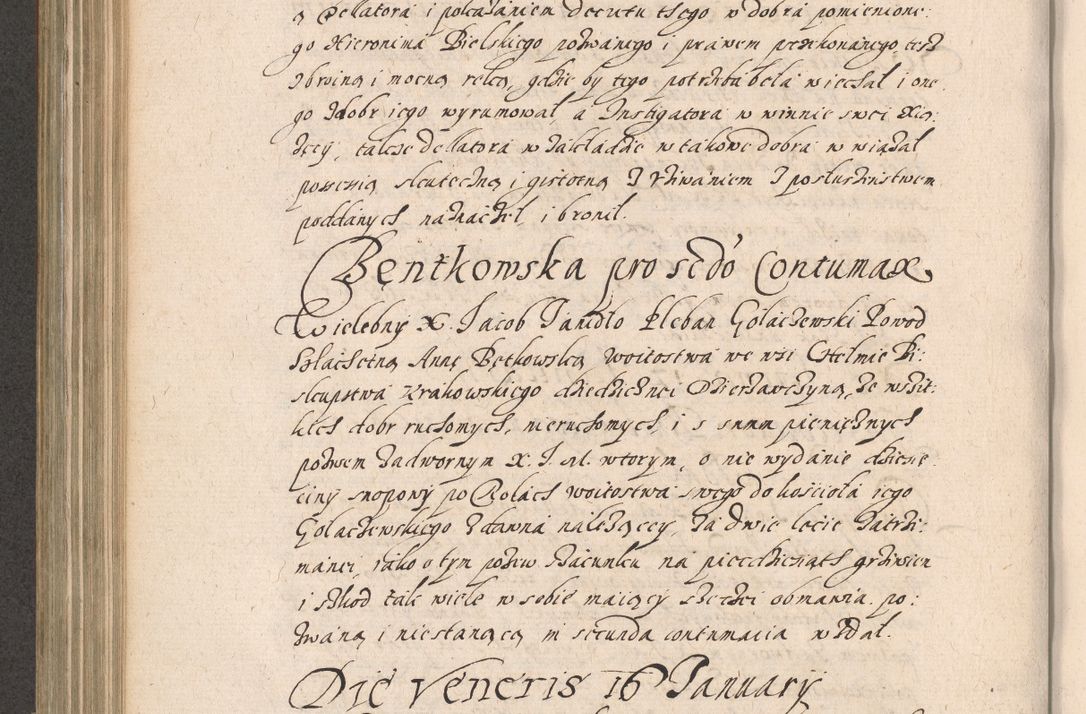 y Dellatora i pokazaniem decretu tszego w dobra pomienione:
go Hieronima Bielskiego pozwanego i prawem przekonanego tesz
zbroiną i mocną ręką, gdzie by tego potrzeba beła wiechał i one:
go z dobr iego wyrumował, a Instigatora w winnie swei Xią:
żęcy, takze dellatora w zakładzie w takowe dobra w wiązał
possessią skuteczną i gistotną z vżiwaniem i posłuszeństwem
poddanych naznaczeł i bronił.
Bęntkowska pro scdo Contumax
Wielebny X. Jacob Janidło Pleban Golaczewski Powod
Szlachetną Annę Bętkowską woitostwa we wsi Chełmie Bi:
skupstwa Krakowskiego dziedzicznei Dzierżawczyną, ze wszit:
kich dobr ruchomych, nieruchomych i s summ pieniężnych
pozwem zadwornym X. J. M. wtorym, o nie wydanie dziesię
ciny snopowy po Rolach woitostwa swego do kościoła iego
Golaczewskiego zdawna należący, za dwie lecie zatrzi:
manei, iako o tym pozew szacunku na pieczdziesiąth grziwien
i szkod tak wiele w sobie maiący szerzei obmawia. po:
zwaną i niestanącą in secunda contumacia wzdał.
Die Veneris 16 January